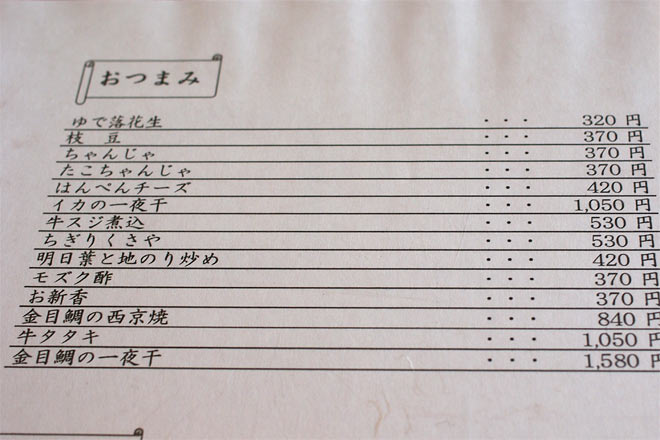 おつまみ
ゆで落花生 ・・・ 320 円
枝 豆 ・・・ 370 円
ちゃんじゃ ・・・ 370 円
たこちゃんじゃ ・・・ 370 円
はんぺんチーズ ・・・ 420 円
イカの一夜干 ・・・ 1,050 円
牛スジ煮込 ・・・ 530 円
ちぎりくさや ・・・ 530 円
明日葉と地のり炒め ・・・ 420 円
モズク酢 ・・・ 370 円
お新香 ・・・ 370 円
金目鯛の西京焼 ・・・ 840 円
牛タタキ ・・・ 1,050 円
金目鯛の一夜干 ・・・ 1,580 円